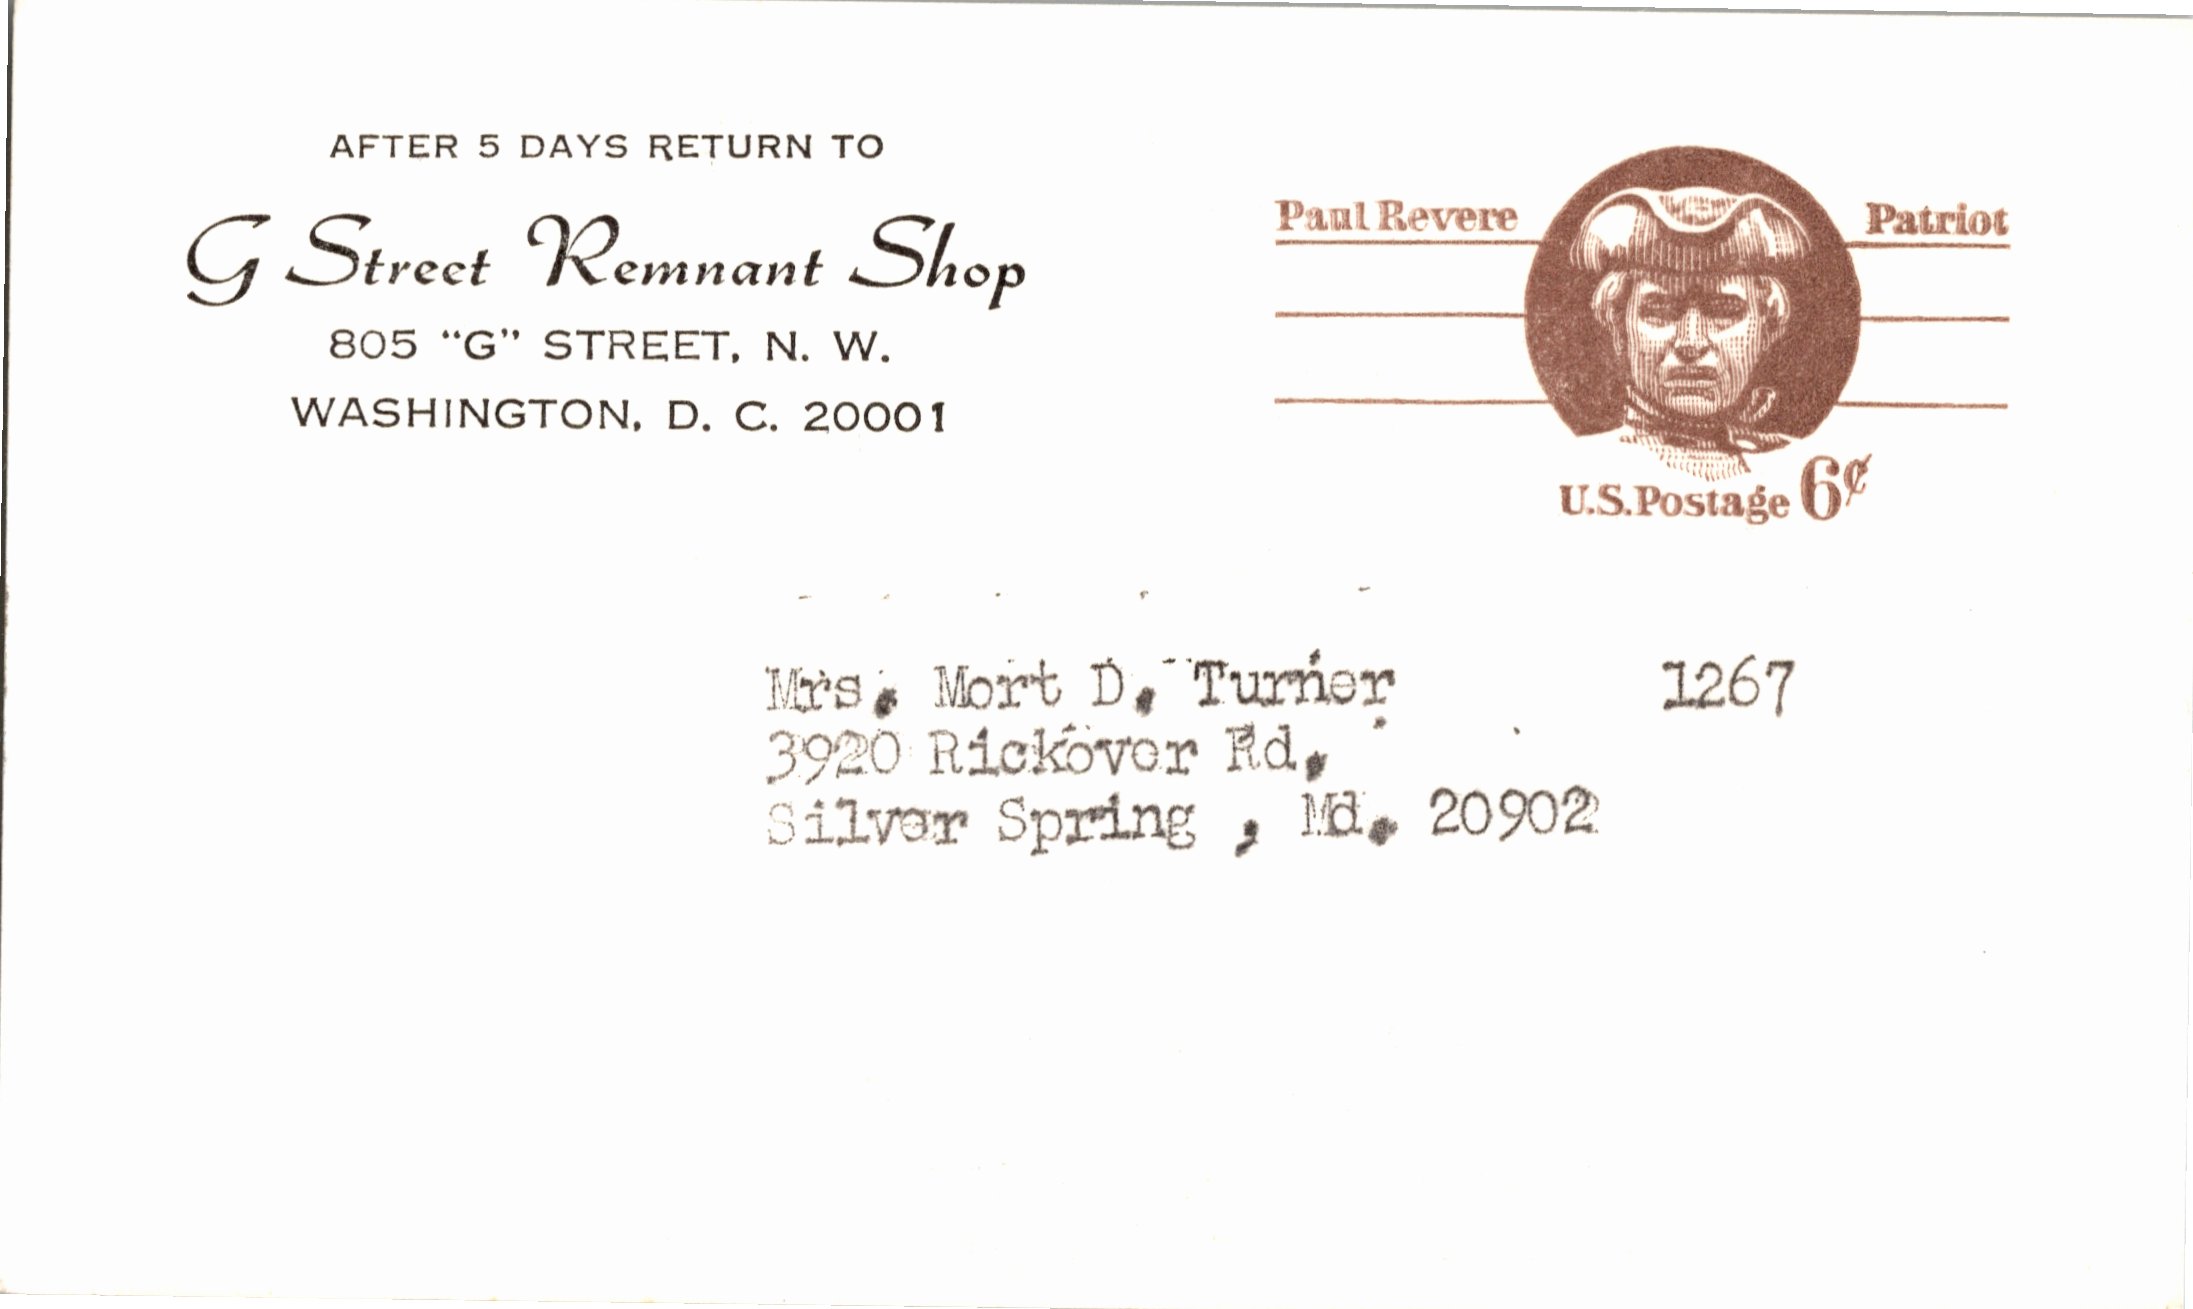 AFTER 5 DAYS RETURN TO
G Street Remnant Shop
805 "G" STREET, N. W.
WASHINGTON, D. C. 20001
Paul Revere Patriot
U.S. Postage 6¢
Mrs. Mort D. Turner 1267
3920 Rickover Rd.
Silver Spring , Md. 20902